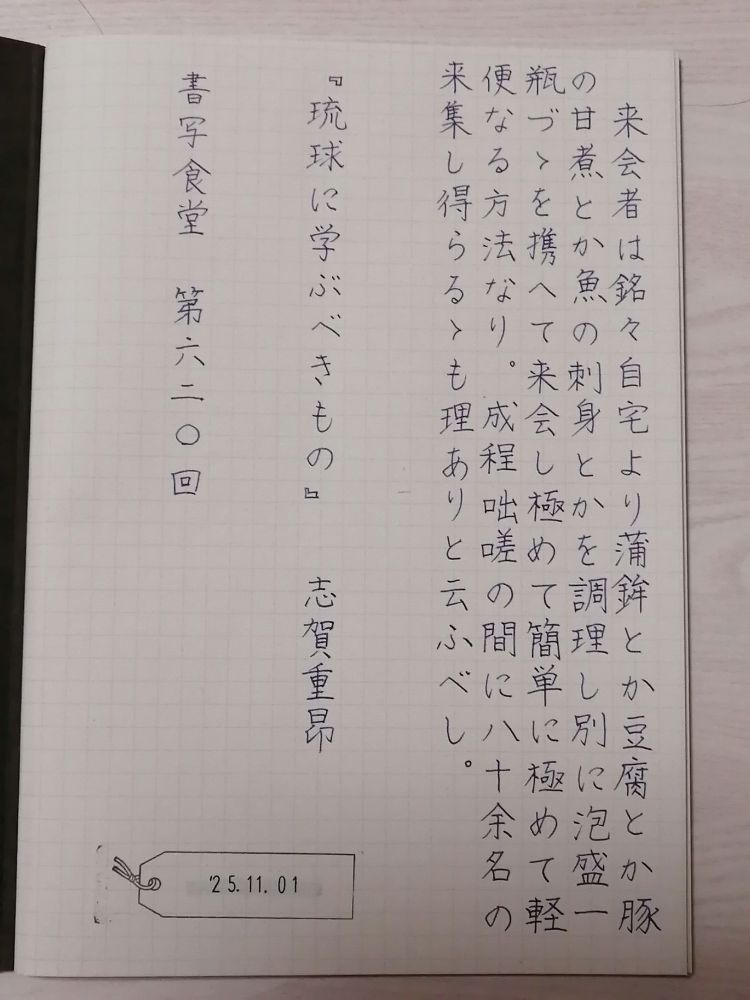 来会者は銘々自宅より蒲鉾とか豆腐とか豚
の甘煮とか魚の刺身とかを調理し別に泡盛一
瓶づゝを携へて来会し極めて簡単に極めて軽
便なる方法なり。成程咄嗟の間に八十余名の
来集し得らるゝも理ありと云ふべし。
『琉球に学ぶべきもの』 志賀重昂
書写食堂 第六二〇回
'25.11.01